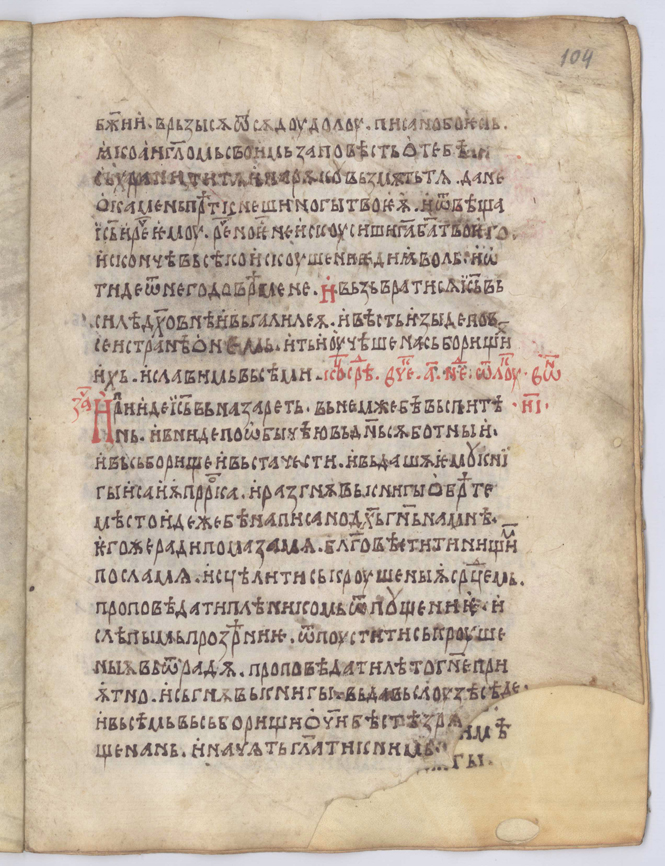 104
бж҃ии · врьзысѧ ѿсѫдоу долоу · писано бо ѥсⷮь ·
ꙗко анг҃ломь своимь заповѣсть о тебѣ
съхранити тѧ и на рѫкѹ възмѫть тѧ · да не
о камень прѣтⸯкнеши ногы твоеѧ · и ѿвѣща
іс҃ь и рече ѥмоу · речено ѥⷭ не искоусиши г҃а б҃а твоѥго ·
и скончѣвь всѣко искоушениѥ диꙗволь · и ѿ
тиде ѿ него до врѣмене · И възьврати сѧ іс҃ь вь
силѣ дх҃овнѣ и вь галилеѧ · и вѣсть изыде по в
сеи странѣ о нѥмь · и ть оучѣше на сьборищиⷯ
ихь · и славимь вьсѣми ·
зⷱ҇ѧ При иде іс҃ь вь назареть · вь немже бѣ въспитѣ · н҃і ·
нь · и вниде по ѡбычаю вь д҃нь сѫботныи ·
и вь сьборище и вьста чести · и вьдашѫ ѥмоу кнї
гы исаиѧ прⷪрка · и разгнѫ вь книгы обрѣте
мѣсто идеже бѣ написано дх҃ь гн҃ь на мнѣ ·
ѥгоже ради помаза мѧ · бл҃говѣстити нищиⷨ
посла мѧ · исцѣлити ськроушеныѫ срⷣцемь ·
проповѣдати плѣникомь ѿпоущениѥ · и
слѣпымь прозрѣниѥ · ѿпоустити ськроуше
ныѧ вь ѿрадѫ · проповѣдати лѣто гн҃е при
ѩтно · и сьгнѫвь книгы · вьдавь слоузѣ сѣде ·
и вьсѣмь вь сьборищи очи бѣстѣ зрѧ
ще на нь · и начѧть гл҃ати к нимь ·
гы ·